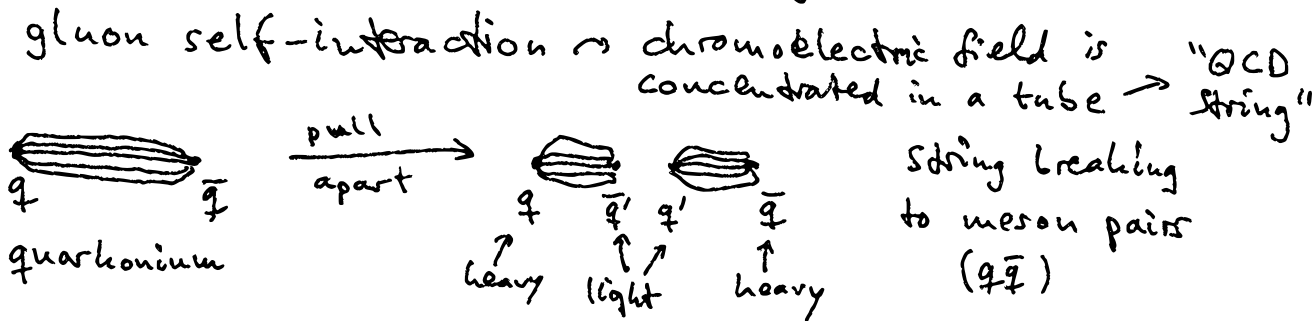 gluon self-interaction ⤳ chromoelectric field is
concentrated in a tube → "QCD
string"
pull
apart
q q̄
quarkonium
q q̄' q' q̄
heavy light heavy
string breaking
to meson pairs
(qq̄)